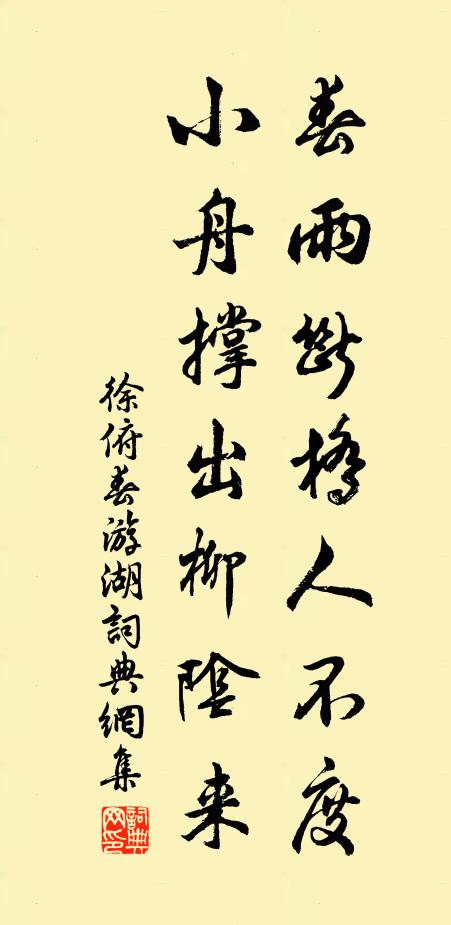 春雨斷橋人不度
小舟撐出柳陰来
徐俯春游湖詞典網集
詞典网印